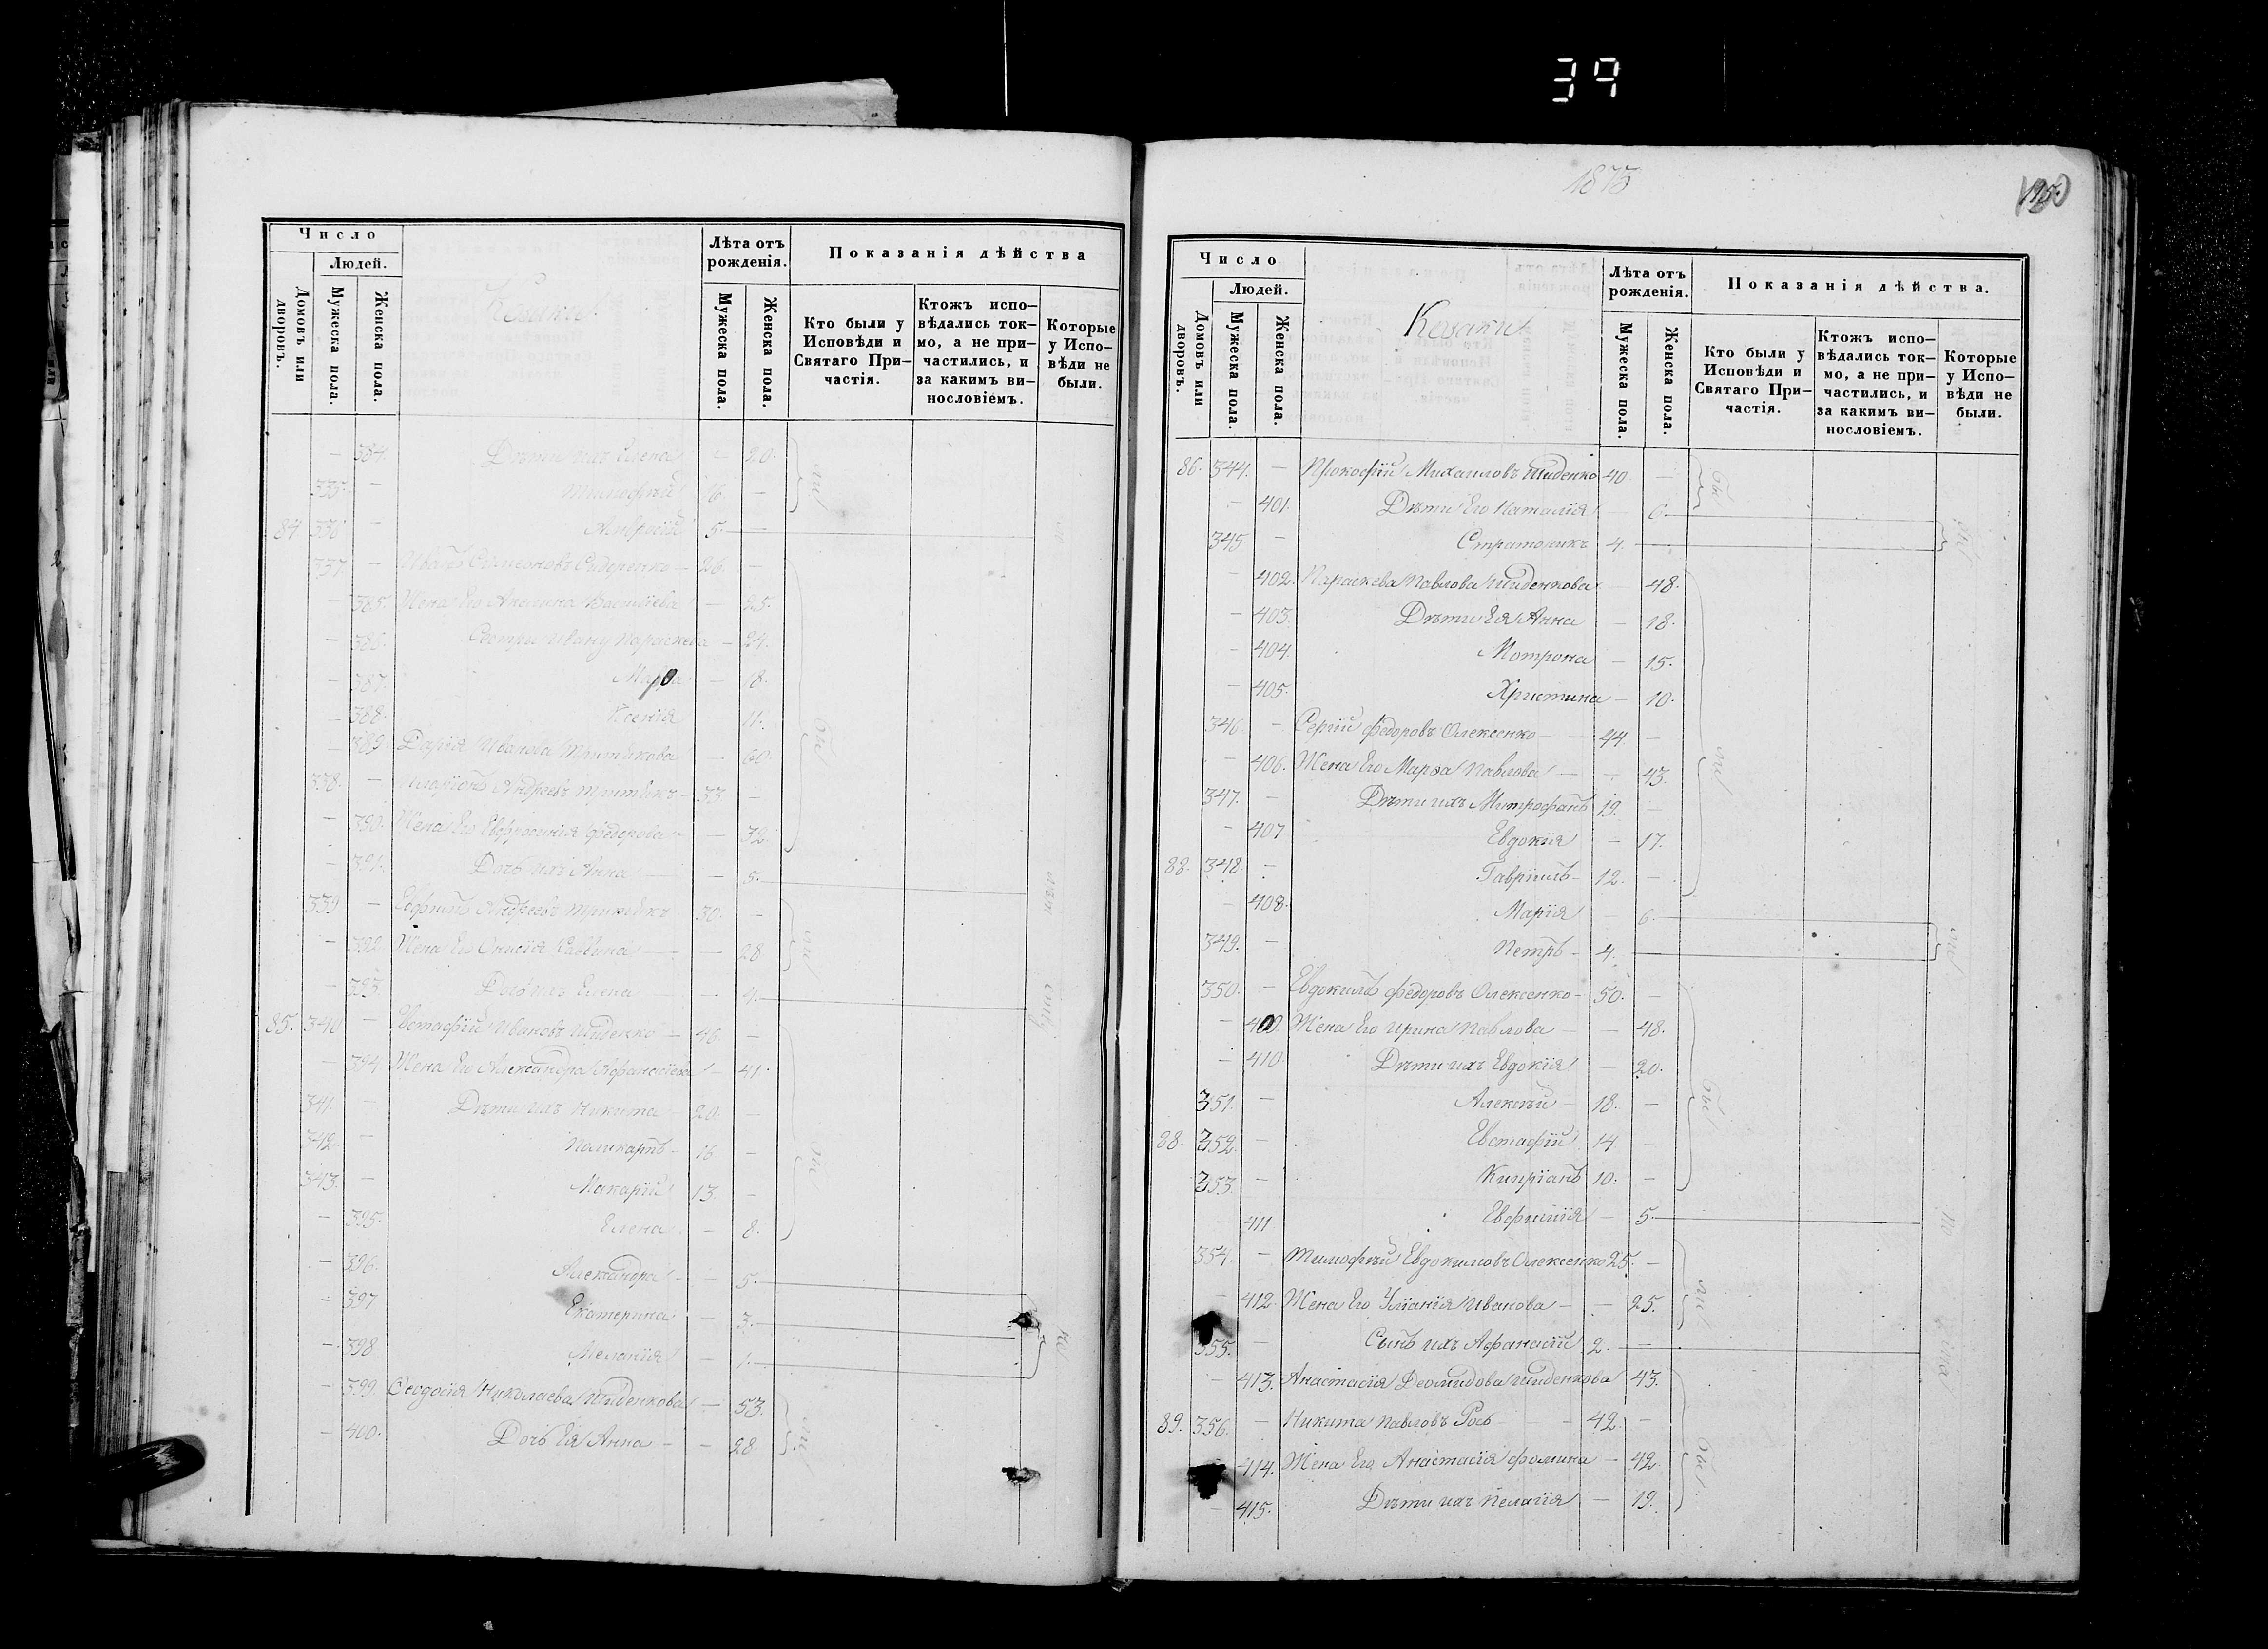 39
Число
Людей.
Домовъ или дворовъ.
Мужеска пола.
Женска пола.
Козаки
Лѣта отъ рожденія.
Мужеска пола.
Женска пола.
Показанія дѣйства
Кто были у Исповѣди и Святаго При-
частія.
Ктожъ испо-
вѣдались ток-
мо, а не при-
частились, и
за какимъ ви-
нословіемъ.
Которые
у Испо-
вѣди не
были.
— 384. Дѣти ихъ Елена — 20.
335. — Тимофей 16. —
84 336 — 5. —
337 — Иванъ Симеоновъ Сидоренко — 26. —
— 385. Жена Его Акилина — 25.
— 386. Сестри Ивану Параскева — 24.
— 387. Марѳа — 8.
— 388. Ксенія — 11.
— 389. Дарія Иванова — 60.
338. — Иларіонъ Андреевъ 33 —
— 390. Жена Его Евфросинія Федорова — 32.
— 391. Дочь ихъ Анна — 5.
339 — Андреевъ 30. —
— 392. Жена Его Онисія Саввина — 28
— 393 Дочь ихъ Елена — 4.
85. 340 — Евстафій Ивановъ Шиденко — 46. —
— 394 Жена Его Александра Афанасіева — 41.
341. — Дѣти ихъ Никита 20. —
342. — Поликарпъ — 16 —
343. — Макарій 13. —
— 395. Елена — 8.
— 396. Александра — 5.
— 397 Екатерина — 3.
— 398 Меланія — 1.
— 399. Ѳеодосія Николаева Шиденкова — 53.
— 400. Дочь Ея Анна — 28.
1875
Число
Людей.
Домовъ или дворовъ.
Мужеска пола.
Женска пола.
Козаки
Лѣта отъ рожденія.
Мужеска пола.
Женска пола.
Показанія дѣйства.
Кто были у
Исповѣди и
Святаго При-
частія.
Ктожъ испо-
вѣдались ток-
мо, а не при-
частились, и
за какимъ ви-
нословіемъ.
Которые
у Испо-
вѣди не
были.
86. 344. — Прокофій Михаиловъ Шиденко 40 —
— 401. Дѣти Его Наталія — 6.
345. — Стратоникъ 4.
— 402. Параскева Павлова Шиденкова — 48.
— 403. Дѣти Ея Анна — 18.
— 404. Мотрона — 15.
— 405. Христина — 10.
346. — Сергій Федоровъ Олексенко — 44. —
— 406. Жена Его Марѳа Павлова — 43.
347. — Дѣти ихъ Митрофанъ 19. —
— 407. Евдокія — 17.
88. 348. — Гавріилъ — 12. —
— 408. Марія — 6.
349. — Петръ — 4.
350. — Евдокимъ Федоровъ Олексенко — 50. —
— 409. Жена Его Ирина Павлова — 48.
— 410. Дѣти ихъ Евдокія — 20.
351. — Алексѣй — 18. —
88. 352. — Евстафій 14 —
353. — Кипріанъ 10. —
— 411 Евфимія — 5.
354. — Тимофѣй Евдокимовъ Олексенко 25. —
— 412 Жена Его Уліанія Иванова — 25.
355. — Сынъ ихъ Афанасій 2. —
— 413. Анастасія Деомидова Шиденкова 43.
89. 356. — Никита Павловъ 42. —
414. Жена Его Анастасія Фомина — 42.
— 415. Дѣти ихъ Пелагія — 19.